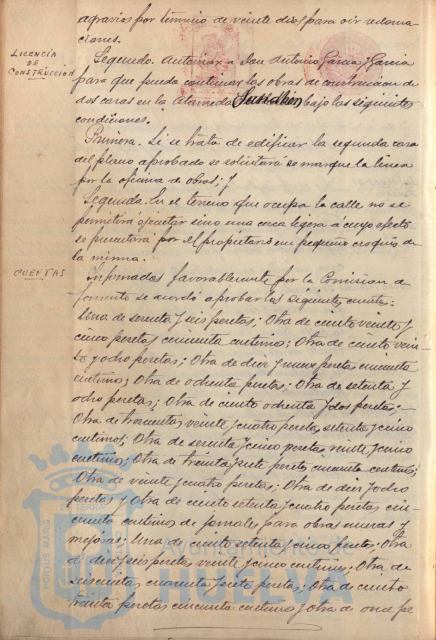 agravios por término de veinte dias para oir reclama
ciones.
LICENCIA
DE
CONSTRUCCIÓN
Segundo. Autorizar a Don Antonio Garcia y Garcia
para que pueda continuar las obras de construccion de
dos casas en la Alameda Sundheim bajo las siguientes
condiciones.
Primera. Si se trata de edificar la segunda casa
del plano aprobado se solicitará se marque la linea
por la oficina de obras; y
Segunda. En el terreno que ocupa la calle no se
permitirá ejecutar sino una cerca ligera á cuyo efecto
se presentará por el propietario un pequeño croquis de
la misma.
CUENTAS
Informadas favorablemente por la Comision de
fomento se acordó aprobar las siguientes cuentas:
Una de sesenta y seis pesetas; Otra de ciento veinte y
cinco pesetas cincuenta centimos; Otra de ciento vein
te y ocho pesetas; Otra de diez y nueve pesetas cincuenta
centimos; Otra de ochenta pesetas; Otra de setenta y
ocho pesetas; Otra de ciento ochenta y dos pesetas;
Otra de trescientas veinte y cuatro pesetas setenta y cinco
centimos; Otra de sesenta y cinco pesetas veinte y cinco
centimos; Otra de treinta y siete pesetas cincuenta centimos;
Otra de veinte y cuatro pesetas; Otra de diez y ocho
pesetas y Otra de ciento setenta y cuatro pesetas cin
cuenta centimos de jornales para obras nuevas y
mejoras; Una de ciento setenta y cinco pesetas; Otra
de diez y seis pesetas veinte y cinco centimos; Otra de
cuarenta y siete pesetas; Otra de ciento
treinta pesetas cincuenta centimos y otra de once pe
Ayuntamiento de
HUELVA
PORTUS MARIS
TERRAE